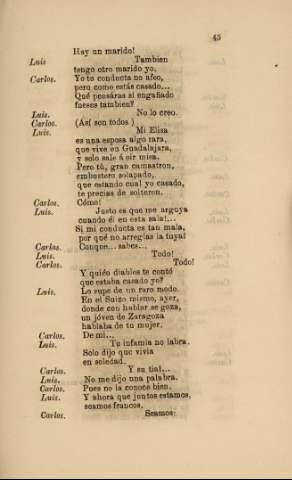 45
Hay un marido!
Luis Tambien
tengo otro marido yo,
Carlos. Yo tu conducta no afeo,
pero como estás casado...
Qué pensáras si engañado
fueses tambien?
Luis. No lo creo.
Carlos. (Así son todos )
Luis. Mi Elisa
es una esposa algo rara,
que vive en Guadalajara,
y solo sale á oir misa.
Pero tú, gran camastron,
embustero solapado,
que estando cual yo casado,
te precias de solteron.
Carlos. Cómo!
Luis. Justo es que me arguya
cuando él en esta sala!...
Si mi conducta es tan mala,
por qué no arreglas la tuya!
Carlos. Conque... sabes...
Luis. Todo!
Carlos. Todo!
Y quién diables te contó
que estaba casado yo?
Luis. Lo supe de un raro modo.
En el Suizo mismo, ayer,
donde con hablar se goza,
un jóven de Zaragoza
hablaba de tu mujer.
Carlos. De mi...
Luis. Tu infamia no labra.
Solo dijo que vivia
en soledad.
Carlos. Y su tia!...
Luis. No me dijo una palabra.
Carlos. Pues no la conoce bien.
Luis. Y ahora que juntos estamos,
seamos francos.
Carlos. Seamos.